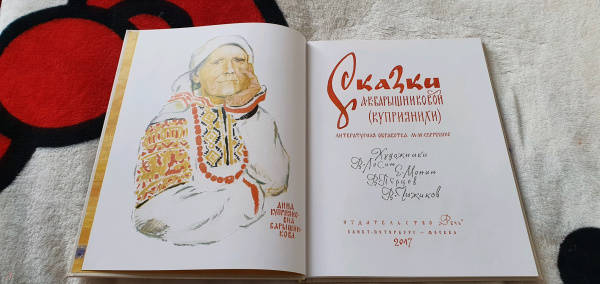 АННА
КУПРИЯНО-
ВНА
БАРЫШНИ-
КОВА
Сказки
А·К·БАРЫШНИКОВОЙ
(КУПРИЯНИХИ)
ЛИТЕРАТУРНАЯ ОБРАБОТКА М·М·СЕРГЕЕНКО
Художники
В·Лосин
Е·Монин
В·Перцов
В·Чижиков
ИЗДАТЕЛЬСТВО Речь
САНКТ-ПЕТЕРБУРГ – МОСКВА
2017